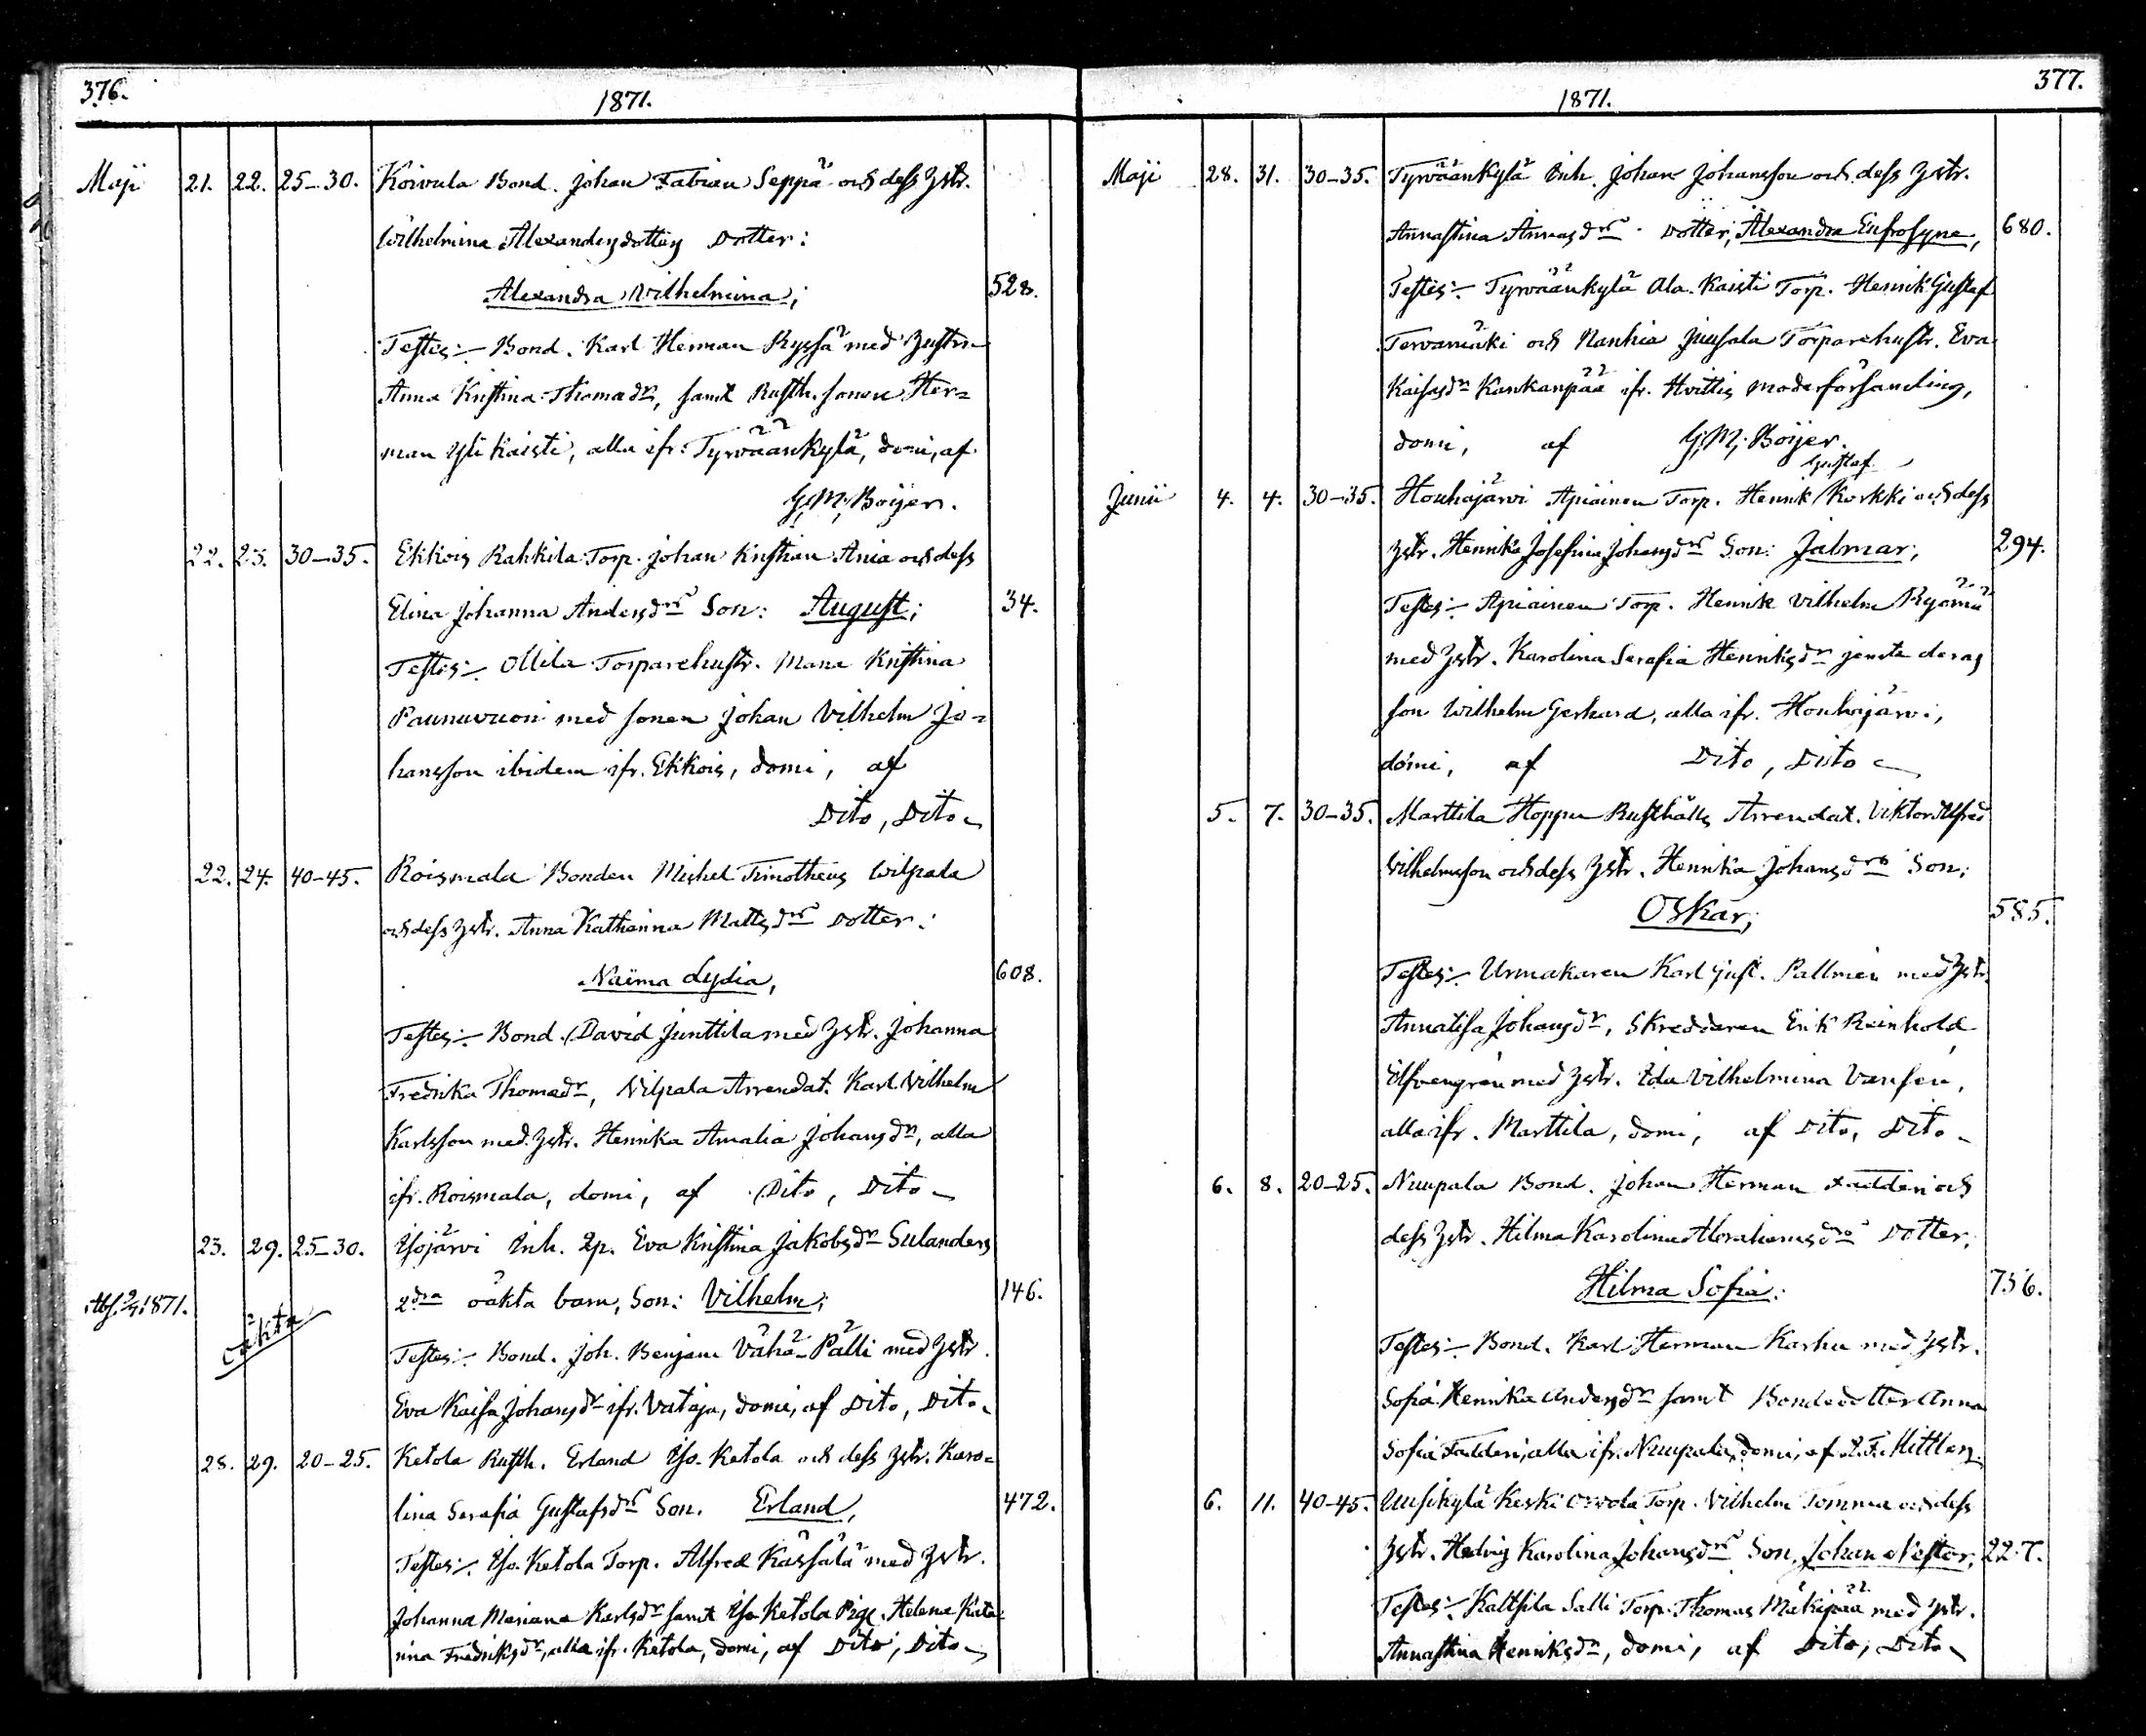 376.
1871.
Maji 21. 22. 25-30. Koivula Bond. Johan Fabian Seppä och dess hstr.
Wilhelmina Alexandersdotters Dotter:
Alexandra Wilhelmina; 528.
Testes:- Bond. Karl Herman Ryssä med hustrun
Anna Kristina Thomadr, samt Rusth. sonen Her=
man Yli Kaisti, alla ifr. Tyrväänkylä, domi, af
G. M. Boijer.
22. 23. 30-35. Ekkois Rahkila Torp. Johan Kristian Ania och dess
Elina Johanna Andersdrs Son: August; 34.
Testes:- Ollila Torparehustr. Maria Kristina
Paunuvuori med sonen Johan Vilhelm Jo=
hansson ibidem ifr. Ekkois, domi, af
Dito, Dito
22. 24. 40-45. Roismala Bonden Michel Timotheus Wilpala
och dess hstr. Anna Katharina Mattsdrs Dotter:
Naima Lydia, 608.
Testes:- Bond. David Junttila med hstr. Johanna
Fredrika Thomadr, Vilpala Arrendat. Karl Vilhelm
Karlsson med hstr. Henrika Amalia Johansdr, alla
ifr. Roismala, domi, af Dito, Dito
23. 29. 25-30. Isojärvi Inh. Qp. Eva Kristina Jakobsdr Sulanders
1871. oäkta
2dra oäkta barn, Son: Vilhelm; 146.
Testes:- Bond. Joh. Benjam Vähä-Pälli med hstr.
Eva Kaisa Johansdr ifr. Vataja, domi, af Dito, Dito
28. 29. 20-25. Ketola Rusth. Erland Iso Ketola och dess hstr. Karo=
lina Serafia Gustafsdrs Son. Erland, 472.
Testes:- Iso Ketola Torp. Alfred Kässälä med hstr.
Johanna Mariana Karlsdr samt Iso Ketola Pige. Helena Kata=
rina Fredriksdr, alla ifr. Ketola, domi, af Dito, Dito
377.
1871.
Maji 28. 31. 30-35. Tyrväänkylä Inh. Johan Johansson och dess hstr.
Annastina Annasdrs Dotter, Alexandra Eufrosyne, 680.
Testes:- Tyrväänkylä Ala Kaisti Torp. Henrik Gustaf
Tervamäki och Nanhia Juusala Torparehustr. Eva
Kaisasdr Kankanpää ifr. Hvittis moderförsamling,
domi, af G. M. Boijer.
Gustaf
Junii 4. 4. 30-35. Houhajärvi Apiainen Torp. Henrik Korkki och dess
hstr. Henrika Josefina Johansdrs Son: Jalmar; 294.
Testes:- Apiainen Torp. Henrik Vilhelm Ryömä
med hstr. Karolina Serafia Henriksdr jemte deras
son Wilhelm Gerhard, alla ifr. Houhajärvi,
domi, af Dito, Dito
5. 7. 30-35. Marttila Hoppu Rusthålls Arrendat. Viktor Alfred
Vilhelmsson och dess hstr. Henrika Johansdrs Son:
Oskar; 585.
Testes:- Urmakaren Karl Gust. Pallmén med hstr.
Annalisa Johansdr, Skreddaren Erik Reinhold
Elfvengrén med hstr. Ida Vilhelmina Vansén,
alla ifr. Marttila, domi, af Dito, Dito
6. 8. 20-25. Nuupala Bond. Johan Herman Fadderi och
dess hstr. Hilma Karolina Abrahamsdrs Dotter,
Hilma Sofia: 756.
Testes:- Bond. Karl Herman Karhu med hstr.
Sofia Henrika Andersdr samt Bondedotter Anna
Sofia Fadderi, alla ifr. Nuupala, domi, af
6. 11. 40-45. Uusikylä Keski Orvola Torp. Vilhelm Tomma och dess
hstr. Hedvig Karolina Johansdrs Son, Johan Nestor; 227.
Testes:- Kaltsila Salli Torp. Thomas Mäkipää med hstr.
Annastina Henriksdr, domi, af Dito, Dito